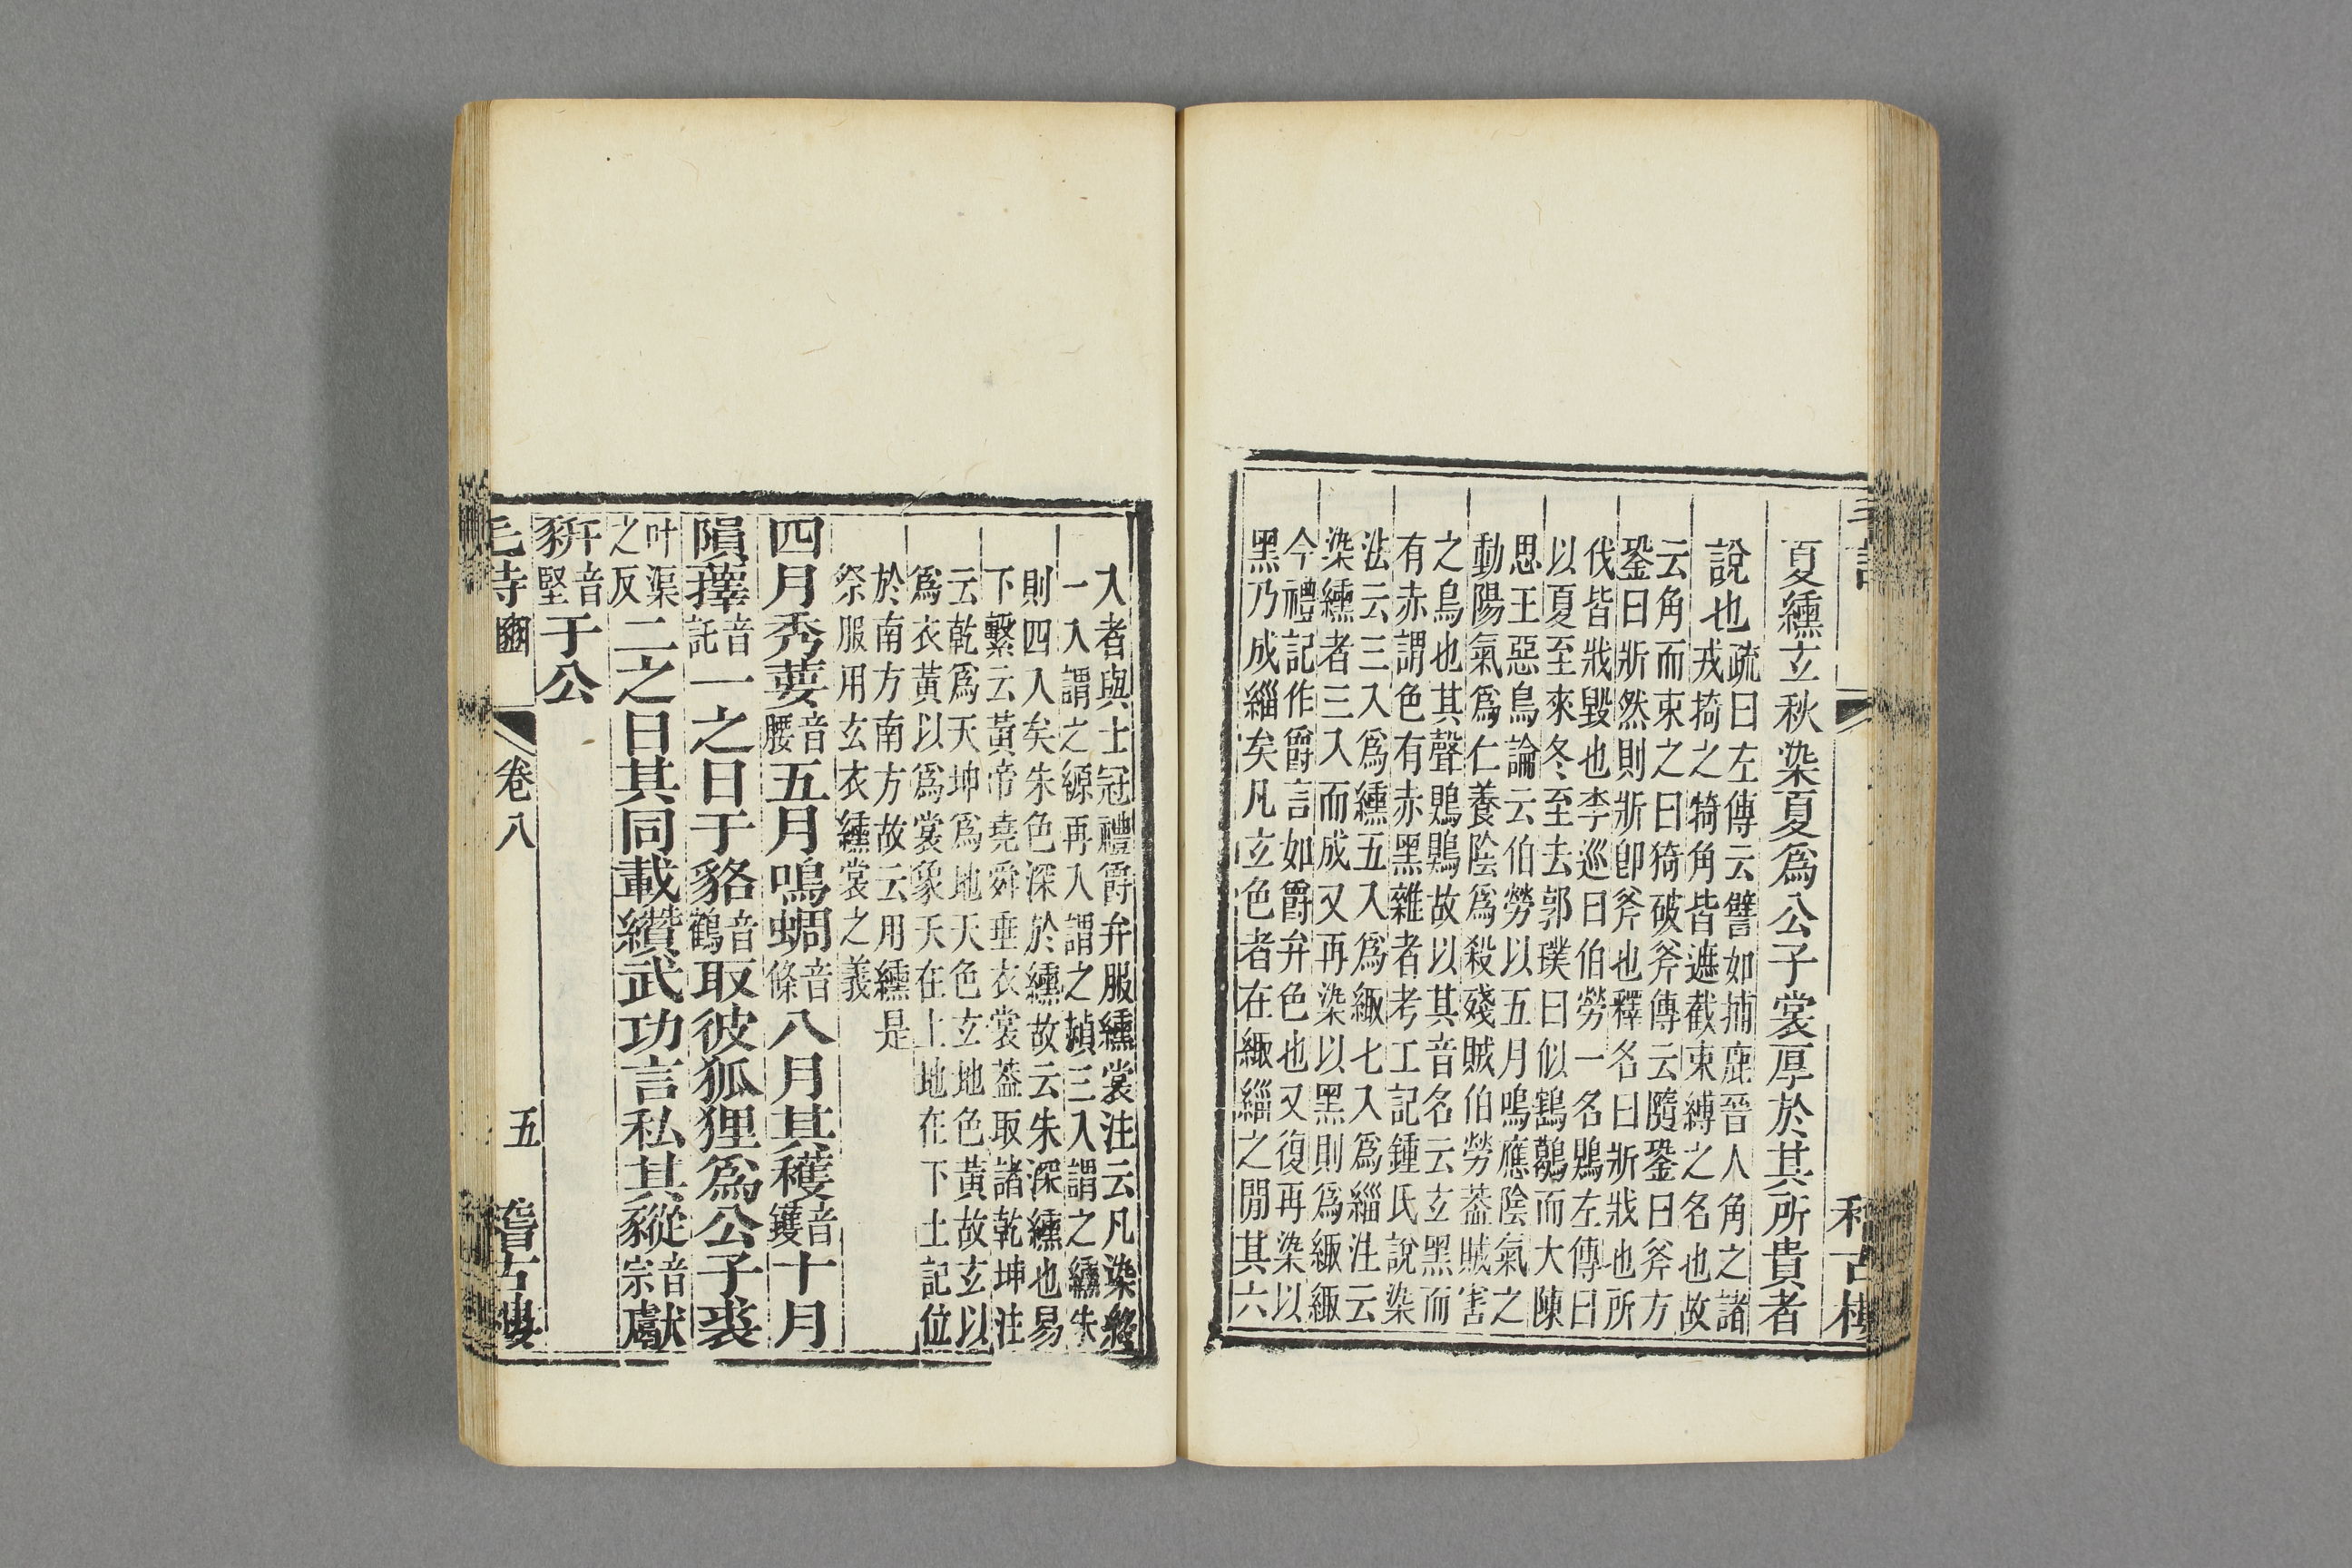 夏纁玄秋染夏爲公子裳厚於其所貴者
說也
疏曰左傳云譬如捕鹿晉人角之諸
戎掎之犄角皆遮截束縛之名也故
云角而束之曰猗破斧傳云隋銎曰斧方
銎曰斨然則斨卽斧也釋名曰斨戕也所
伐皆戕毀也李巡曰伯勞一名鵙左傳曰
以夏至來冬至去郭璞曰似鶷鶡而大陳
思王惡鳥論云伯勞以五月鳴應陰氣之
動陽氣爲仁養陰爲殺殘賊伯勞葢賊害
之鳥也其聲鵙鵙故以其音名云玄黑而
有赤謂色有赤黑雜者考工記鍾氏說染
法云三入爲纁五入爲緅七入爲緇注云
染纁者三入而成又再染以黑則爲緅緅
今禮記作爵言如爵弁色也又復再染以
黑乃成緇矣凡玄色者在緅緇之閒其六
入者與士冠禮爵弁服纁裳注云凡染絳
一入謂之縓再入謂之赬三入謂之纁朱
則四入矣朱色深於纁故云朱深纁也易
下繫云黃帝堯舜垂衣裳葢取諸乾坤注
云乾爲天坤爲地天色玄地色黃故玄以
爲衣黃以爲裳象天在上地在下土記位
於南方南方故云用纁是
祭服用玄衣纁裳之義
四月秀葽音腰五月鳴蜩音條八月其穫音鑊十月
隕蘀音託一之日于貉音鶴取彼狐狸爲公子裘
叶渠之反二之日其同載纘武功言私其豵音宗獻
豣音堅于公
毛詩豳 卷八 五 稽古樓